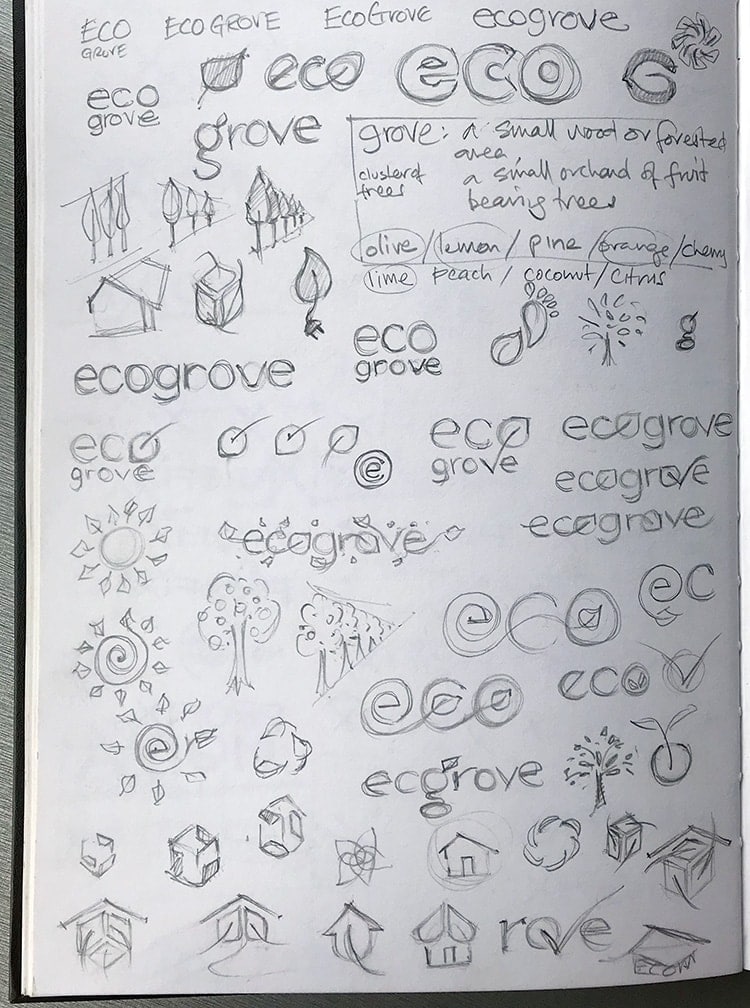 ECO
GROVE
ECO GROVE
ECOGROVE
ecogrove
eco
grove
eco
eco
grove
grove: A small wood or forested
area,
cluster of
trees
a small orchard of fruit
bearing trees
olive / lemon / pine / orange / cherry
lime peach / coconut / citrus
eco
grove
g
ecogrove
eco
grove
e
eco
grove
ecogrove
ecogrove
ecogrove
ecogrove
eco
ec
eco
eco
e
ecgrove
rove
ECOGR